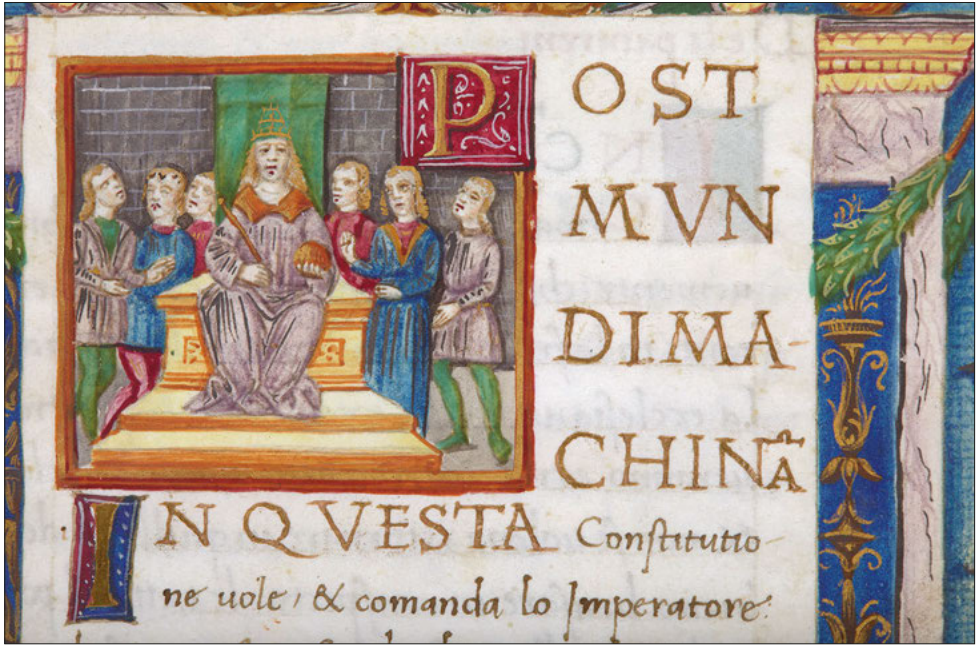 POST
MVN
DIMA-
CHINĀ
IN QVESTA Conſtitutio-
ne uole, & comanda lo Imperatore: